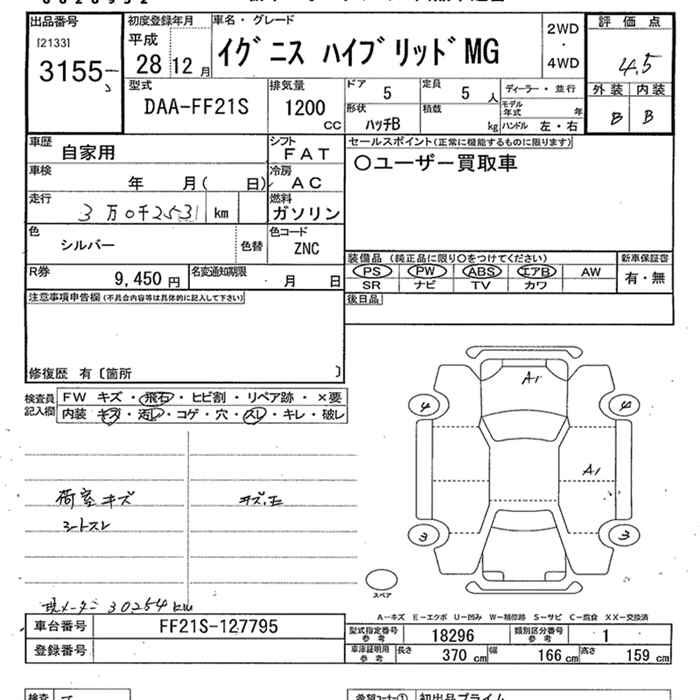 出品番号
[2133]
3155
初度登録年月
平成
28 12 月
車名・グレード
イグニス ハイブリッドMG
2WD
・
4WD
評価点
4.5
外装 内装
B B
型式
DAA-FF21S
排気量
1200
CC
ドア 5
定員 5 人
ディーラー・並行
形状 ハッチB
積載 kg
モデル年式 年
ハンドル 左・右
車歴
自家用
シフト
FAT
セールスポイント(正常に機能するものに限ります)
○ユーザー買取車
車検
年 月( 日)
冷房
AC
走行
3万0千2531 km
燃料
ガソリン
色
シルバー
色替
色コード
ZNC
装備品(純正品に限り○をつけてください)
新車保証書
PS PW ABS エアB AW
有・無
SR ナビ TV カワ
R券
9,450 円
名変通知期限
月 日
後日品
注意事項申告欄(不具合内容等は具体的に記入して下さい)
修復歴 有〔箇所 〕
検査員記入欄
FW キズ・飛石・ヒビ割・リペア跡・×要
内装 キズ・汚レ・コゲ・穴・スレ・キレ・破レ
荷室キズ
シートスレ
A1
4 4
A1
3 3
スペア
現メーター 30254km
A-キズ E-エクボ U-凹み W-補修跡 S-サビ C-腐食 XX-交換済
車台番号
FF21S-127795
型式指定番号参考
18296
類別区分番号参考
1
登録番号
車庫証明用参考
長さ 370 cm
幅 166 cm
高さ 159 cm
初出品プライム